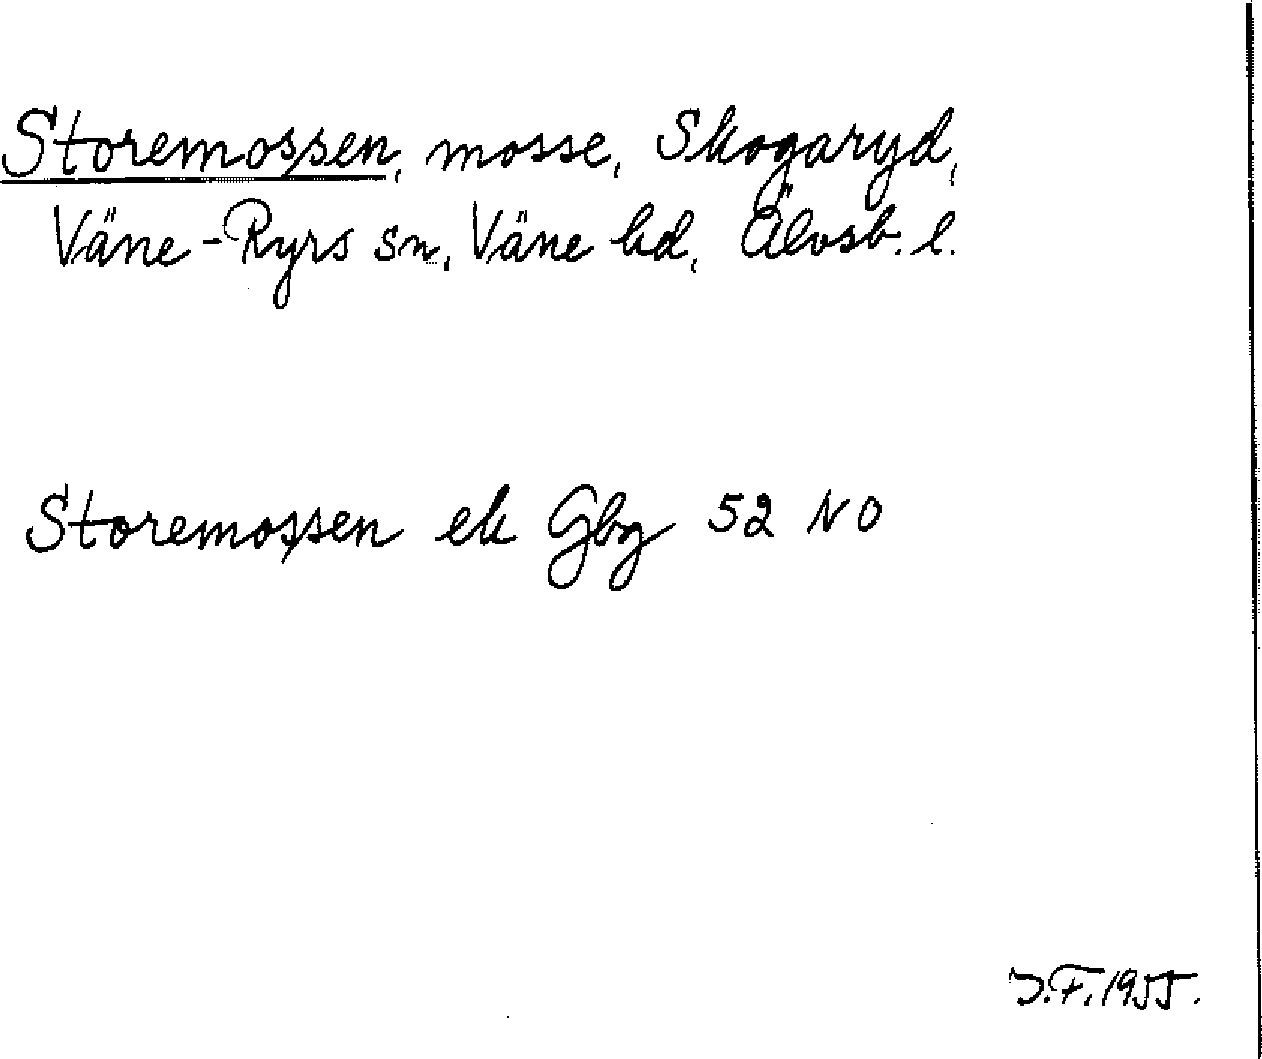 Storemossen, mosse, Skogaryd,
Väne-Ryrs sn, Väne hd, Älvsb. l.
Storemossen ek Gbg 52 NO
J.F. 1955.